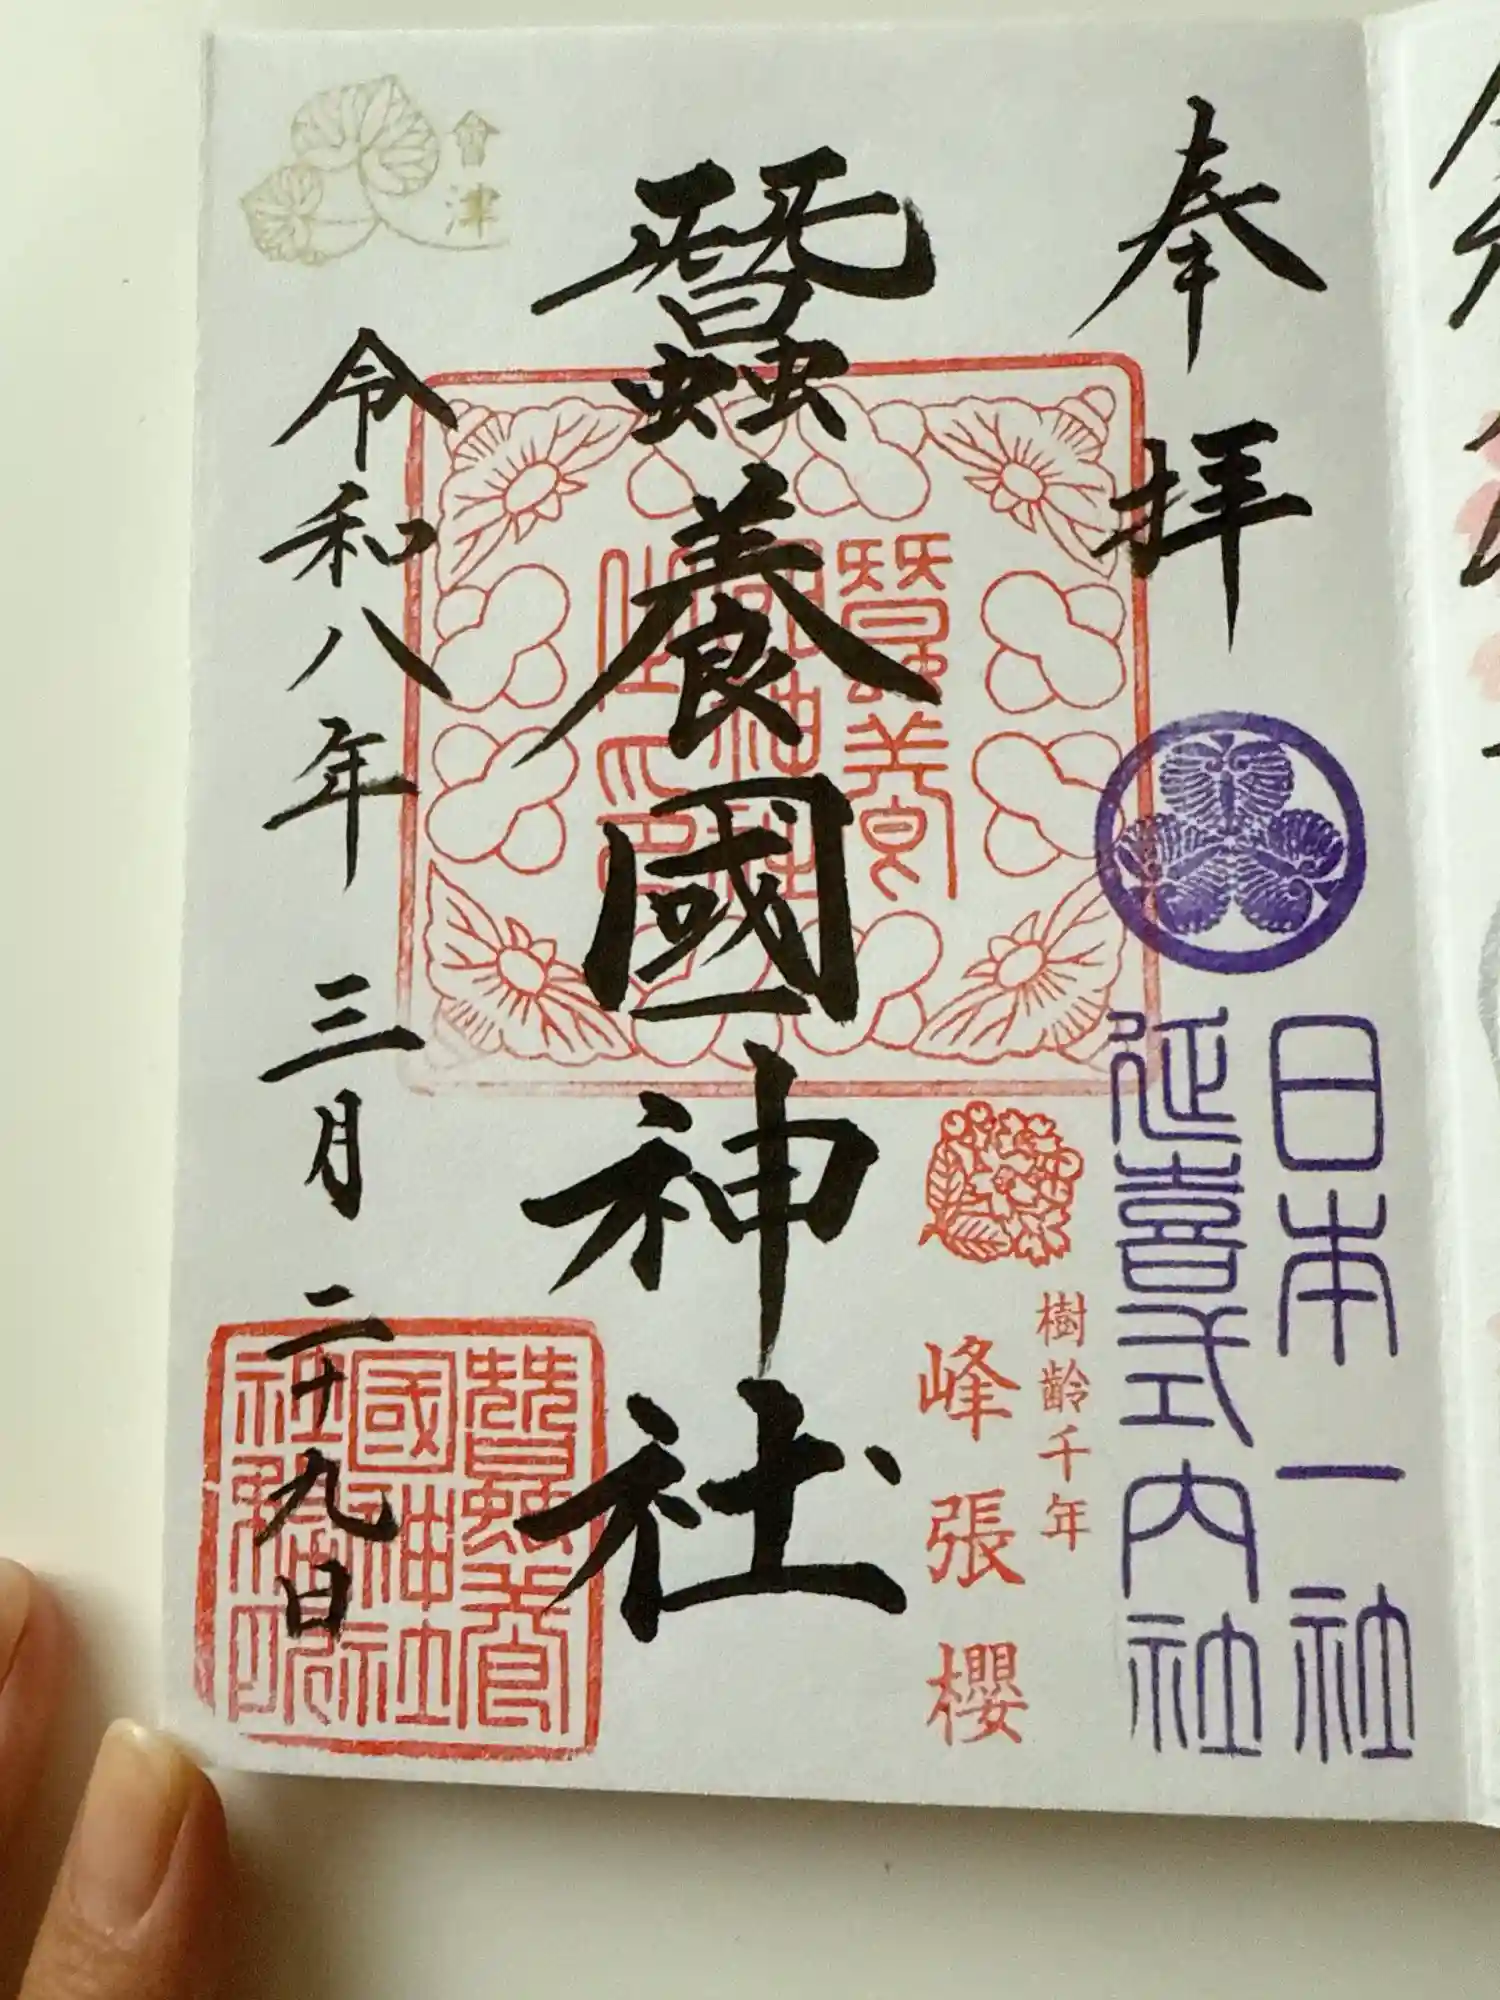 奉拝
日本一社
延喜式内社
樹齢千年
峰張櫻
蠶養國神社
蠶養國神社
會津
令和八年 三月二十九日